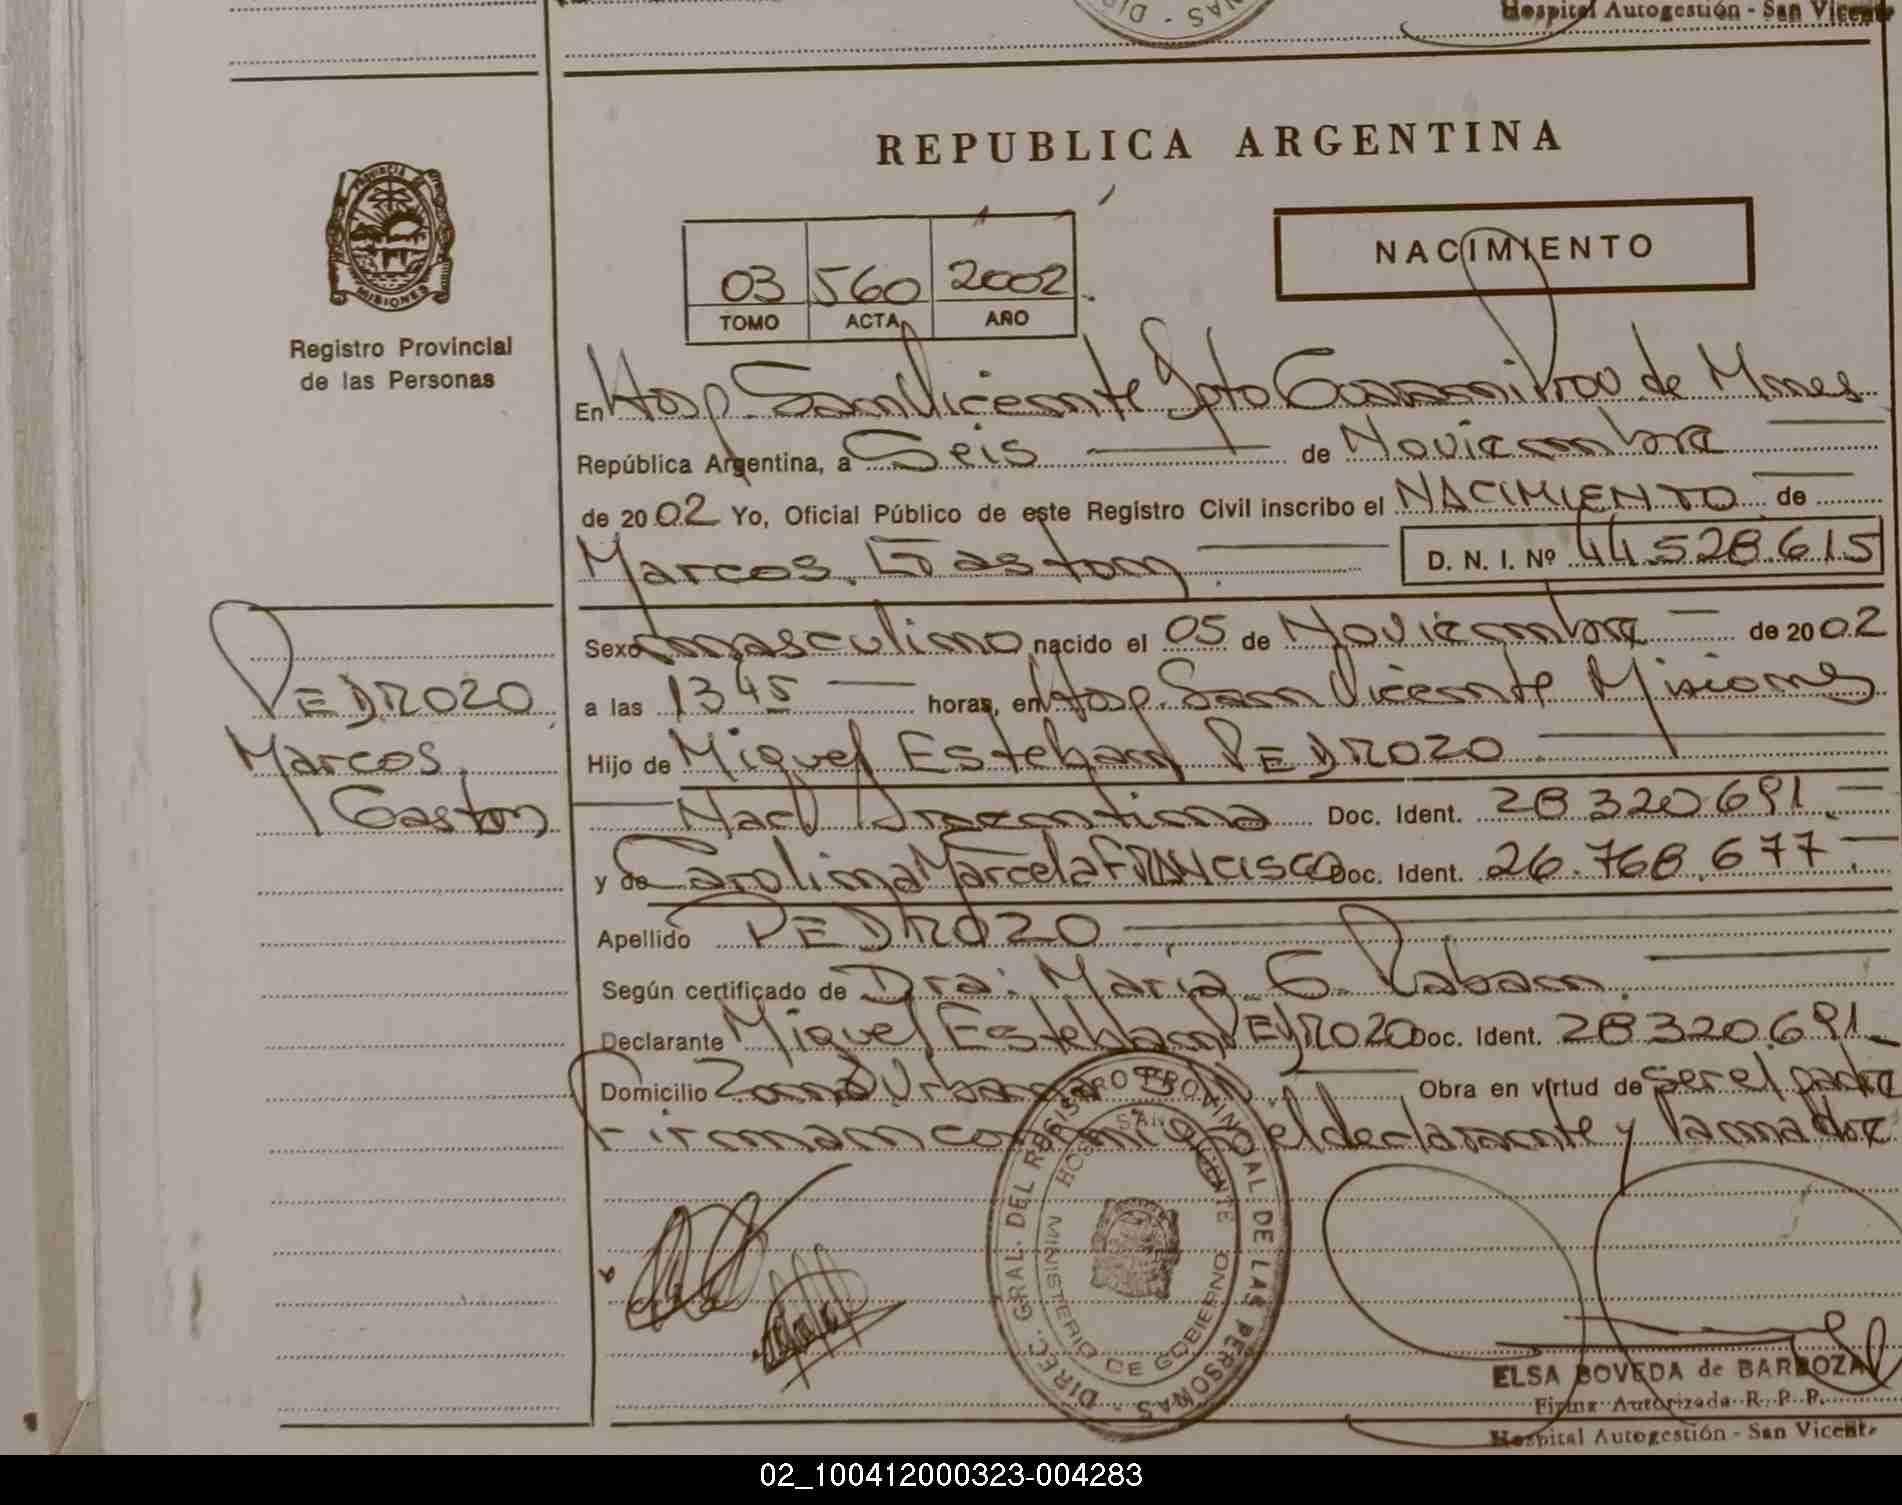 Hospital Autogestión - San Vicente
REPUBLICA ARGENTINA
PROVINCIA DE
MISIONES
Registro Provincial
de las Personas
03 560 2002
TOMO ACTA AÑO
NACIMIENTO
En Hosp. San Vicente Dpto Guarani Prov de Mnes
República Argentina, a Seis de Noviembre
de 2002 Yo, Oficial Público de este Registro Civil inscribo el NACIMIENTO de
Marcos Gaston D. N. I. Nº 44.528.615
Sexo masculino nacido el 05 de Noviembre de 2002
a las 13 45 horas, en Hosp. San Vicente Misiones
Hijo de Miguel Esteban PEDROZO
Nac. Argentina Doc. Ident. 28.320.691
y de Carolina Marcela FRANCISCO Doc. Ident. 26.768.677
Apellido PEDROZO
Según certificado de Dra. Maria G. Rabam
Declarante Miguel Esteban PEDROZO Doc. Ident. 28.320.691
Domicilio Zona Urbana Obra en virtud de ser el padre
Firman conmigo el declarante y la madre
PEDROZO
Marcos
Gaston
DIREC. GRAL. DEL REGISTRO PROVINCIAL DE LAS PERSONAS
HOSP. SAN VICENTE
MINISTERIO DE GOBIERNO
ELSA BOVEDA de BARBOZA
Firma Autorizada R. P. P.
Hospital Autogestión - San Vicente
02_100412000323-004283